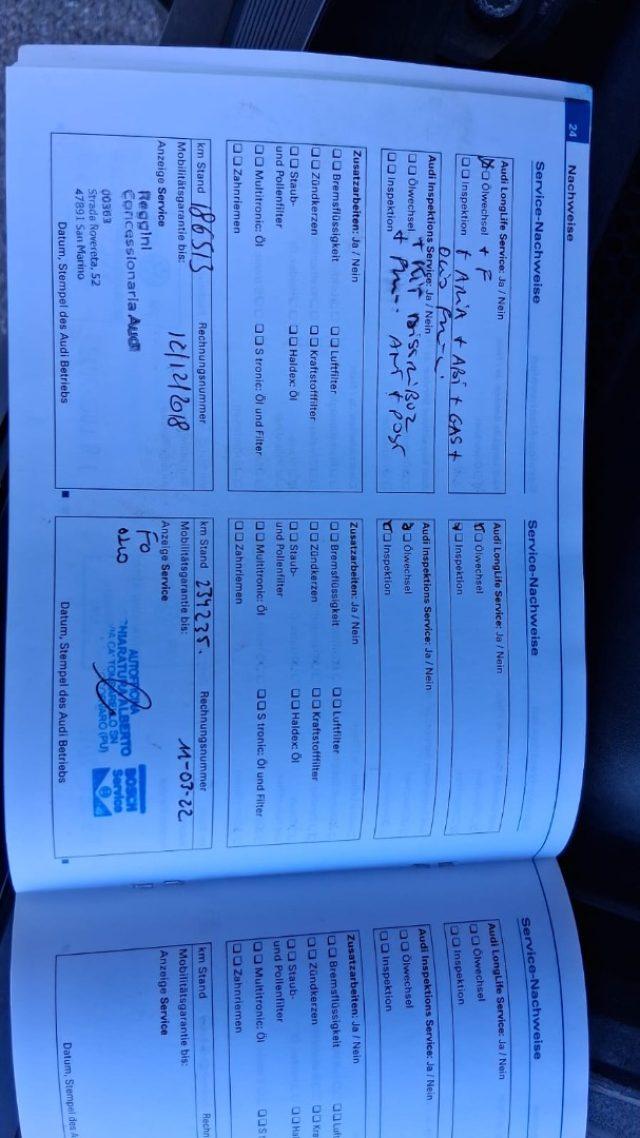 24
Nachweise
Service-Nachweise
Audi LongLife Service: Ja / Nein
Ölwechsel + F
Inspektion + Aria + Abi + GAS +
Audi Inspektions Service: Ja / Nein
Ölwechsel
Inspektion
Zusatzarbeiten: Ja / Nein
Bremsflüssigkeit
Luftfilter
Zündkerzen
Kraftstofffilter
Staub-
und Pollenfilter
Haldex: Öl
Multitronic: Öl
S tronic: Öl und Filter
Zahnriemen
km Stand 186513
Rechnungsnummer
Mobilitätsgarantie bis:
12/12/2018
Anzeige Service
Reggini
Concessionaria Audi
00363
Strada Rovereta, 52
47891 San Marino
Datum, Stempel des Audi Betriebs
Service-Nachweise
Audi LongLife Service: Ja / Nein
Ölwechsel
Inspektion
Audi Inspektions Service: Ja / Nein
Ölwechsel
Inspektion
Zusatzarbeiten: Ja / Nein
Bremsflüssigkeit
Luftfilter
Zündkerzen
Kraftstofffilter
Staub-
und Pollenfilter
Haldex: Öl
Multitronic: Öl
S tronic: Öl und Filter
Zahnriemen
km Stand 234235.
Rechnungsnummer
Mobilitätsgarantie bis:
11-03-22
Anzeige Service
Fo
olio
AUTOFFICINA
CHIARATURA ALBERTO
(PU)
BOSCH
Service
Datum, Stempel des Audi Betriebs
Service-Nachweise
Audi LongLife Service: Ja / Nein
Ölwechsel
Inspektion
Audi Inspektions Service: Ja / Nein
Ölwechsel
Inspektion
Zusatzarbeiten: Ja / Nein
Bremsflüssigkeit
Luft
Zündkerzen
Kra
Staub-
und Pollenfilter
Hal
Multitronic: Öl
S t
Zahnriemen
km Stand
Rechn
Mobilitätsgarantie bis:
Anzeige Service
Datum, Stempel des A